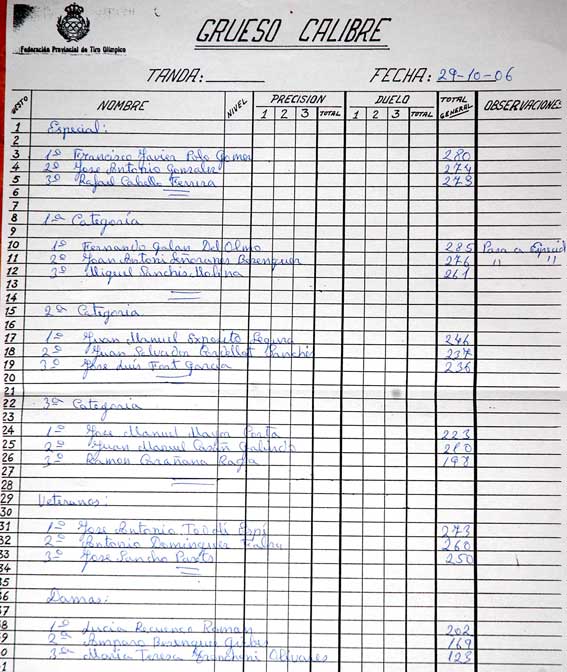 Federación Provincial de Tiro Olímpico
GRUESO CALIBRE
TANDA: FECHA: 29-10-06
PUESTO NOMBRE NIVEL PRECISION DUELO TOTAL GENERAL OBSERVACIONES
1 2 3 TOTAL 1 2 3 TOTAL
1 Especial:
2
3 1º Francisco Javier Polo Gomez 280
4 2º Jose Antonio Gonzalez 274
5 3º Rafael Cabello 273
6
7
8 1ª Categoría
9
10 1º Fernando Galan Del Olmo 285 Pasa a Especial
11 2º Joan Antoni Señoranes Berenguer 276 " "
12 3º Miguel Sanchis Molina 261
13
14
15 2ª Categoria
16
17 1º Juan Manuel Exposito Segura 246
18 2º Juan Salvador Sanchis 237
19 3º Jose Luis Font Garcia 236
20
21
22 3ª Categoria
23
24 1º Jose Manuel Mayor 223
25 2º Juan Manuel Galindo
26 3º Ramon 198
27
28
29 Veteranos:
31 1º Jose Antonio Espí 273
32 2º Antonio Dominguez 260
33 3º Jose Sancho 250
34
35
36 Damas:
1ª Lucia Recuenco Roman 202
2ª Amparo Berenguer 169
3ª Maria Teresa Olivares 123